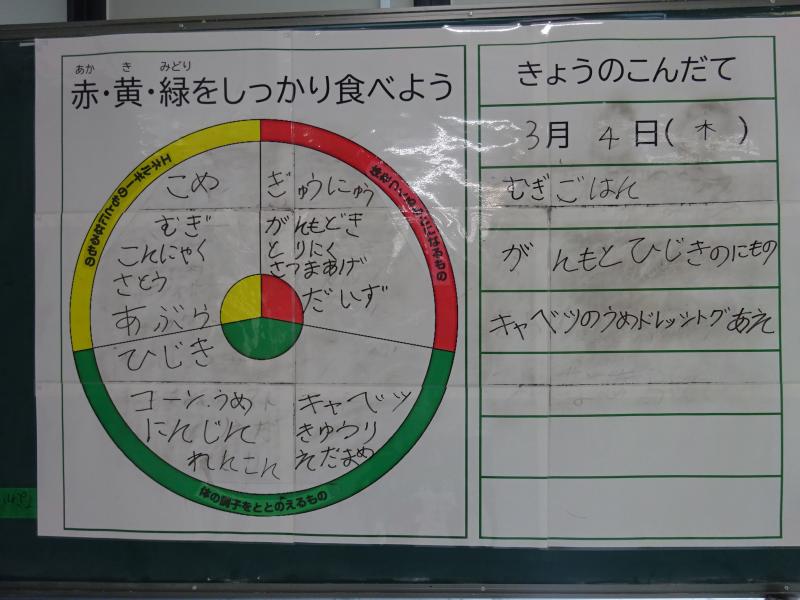 あか き みどり
赤・黄・緑をしっかり食べよう
エネルギーのもとになるもの
体をつくるもとになるもの
こめ
むぎ
こんにゃく
さとう
あぶら
ひじき
ぎゅうにゅう
がんもどき
とりにく
さつまあげ
だいず
コーン.うめ
にんじん
れんこん
キャベツ
きゅうり
えだまめ
体の調子をととのえるもの
きょうのこんだて
3月 4日(木)
むぎごはん
がんもとひじきのにもの
キャベツのうめドレッシングあえ